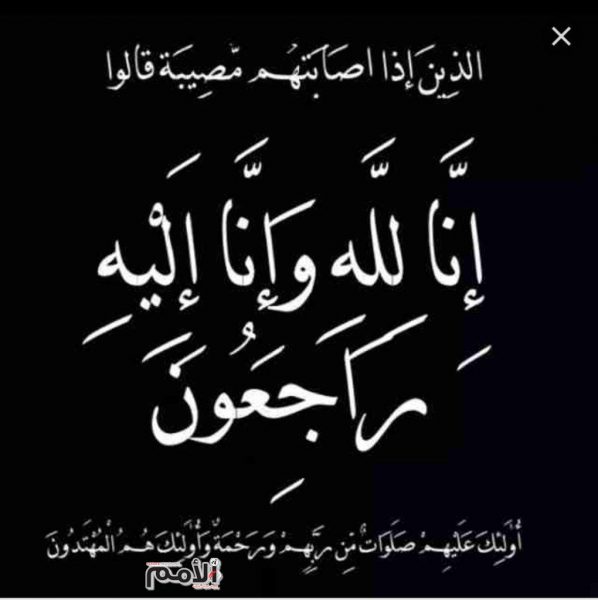 الذِينَ إذا اصَابَتهُم مّصِيبَة قالوا
إِنَّا للَّه وَإِنَّا إِلَيْهِ
رَاجِعُونَ
أُولَئِكَ عَلَيهِمْ صَلَوَاتٌ مِّن رَبِّهِمْ وَرَحْمَةٌ وَأُولَئِكَ هُمُ الْمُهْتَدُونَ
الأمم